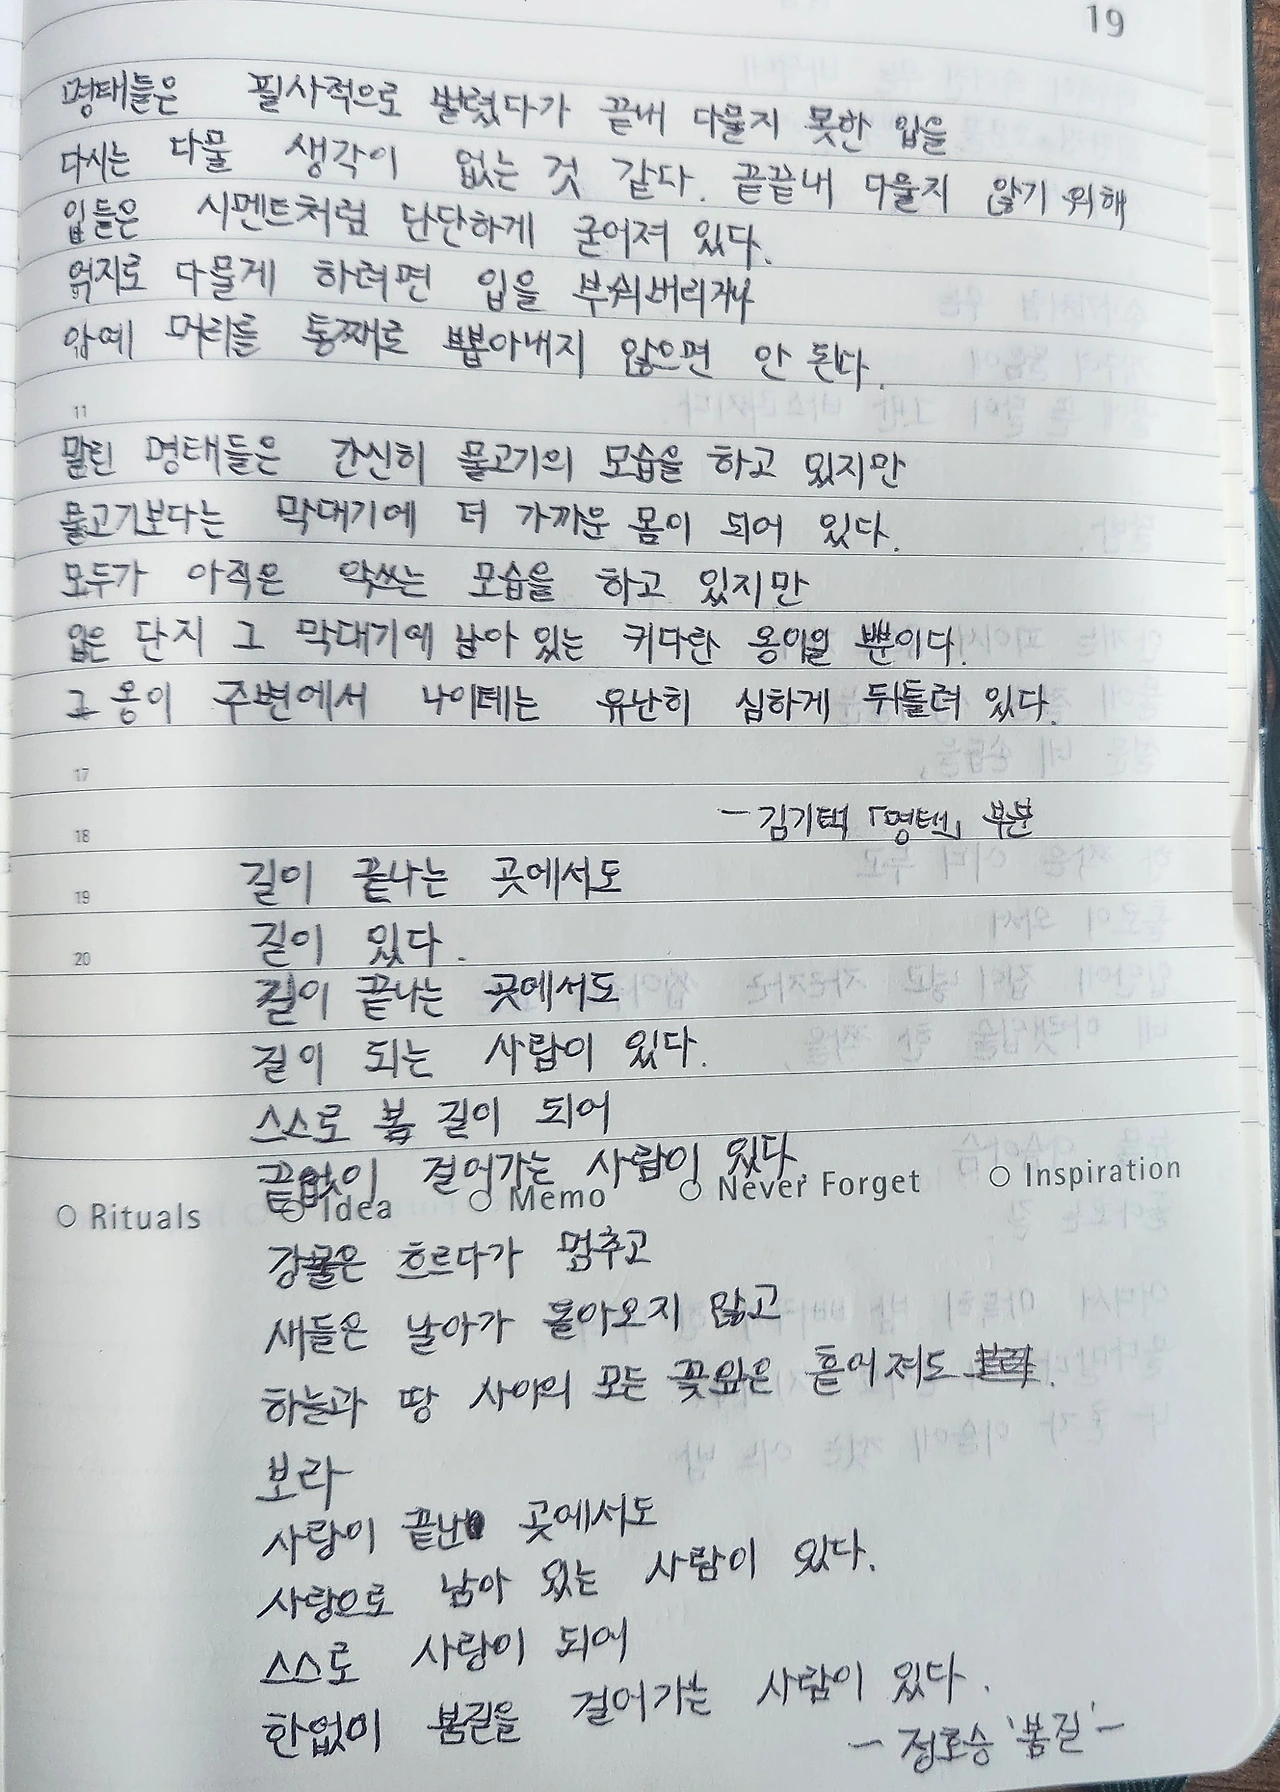 19
명태들은 필사적으로 벌렸다가 끝내 다물지 못한 입을
다시는 다물 생각이 없는 것 같다. 끝끝내 다물지 않기 위해
입들은 시멘트처럼 단단하게 굳어져 있다.
억지로 다물게 하려면 입을 부숴버리거나
아예 머리를 통째로 뽑아내지 않으면 안 된다.
11
말린 명태들은 간신히 물고기의 모습을 하고 있지만
물고기보다는 막대기에 더 가까운 몸이 되어 있다.
모두가 아직은 악쓰는 모습을 하고 있지만
입은 단지 그 막대기에 남아 있는 커다란 옹이일 뿐이다.
그 옹이 주변에서 나이테는 유난히 심하게 뒤틀려 있다.
17
18 -김기택 「명태」 부분
19 길이 끝나는 곳에서도
20 길이 있다.
길이 끝나는 곳에서도
길이 되는 사람이 있다.
스스로 봄 길이 되어
끝없이 걸어가는 사람이 있다.
○ Rituals ○ Idea ○ Memo ○ Never Forget ○ Inspiration
강물은 흐르다가 멈추고
새들은 날아가 돌아오지 않고
하늘과 땅 사이의 모든 꽃잎은 흩어져도
보라
사랑이 끝난 곳에서도
사랑으로 남아 있는 사람이 있다.
스스로 사랑이 되어
한없이 봄길을 걸어가는 사람이 있다.
- 정호승 '봄길' -